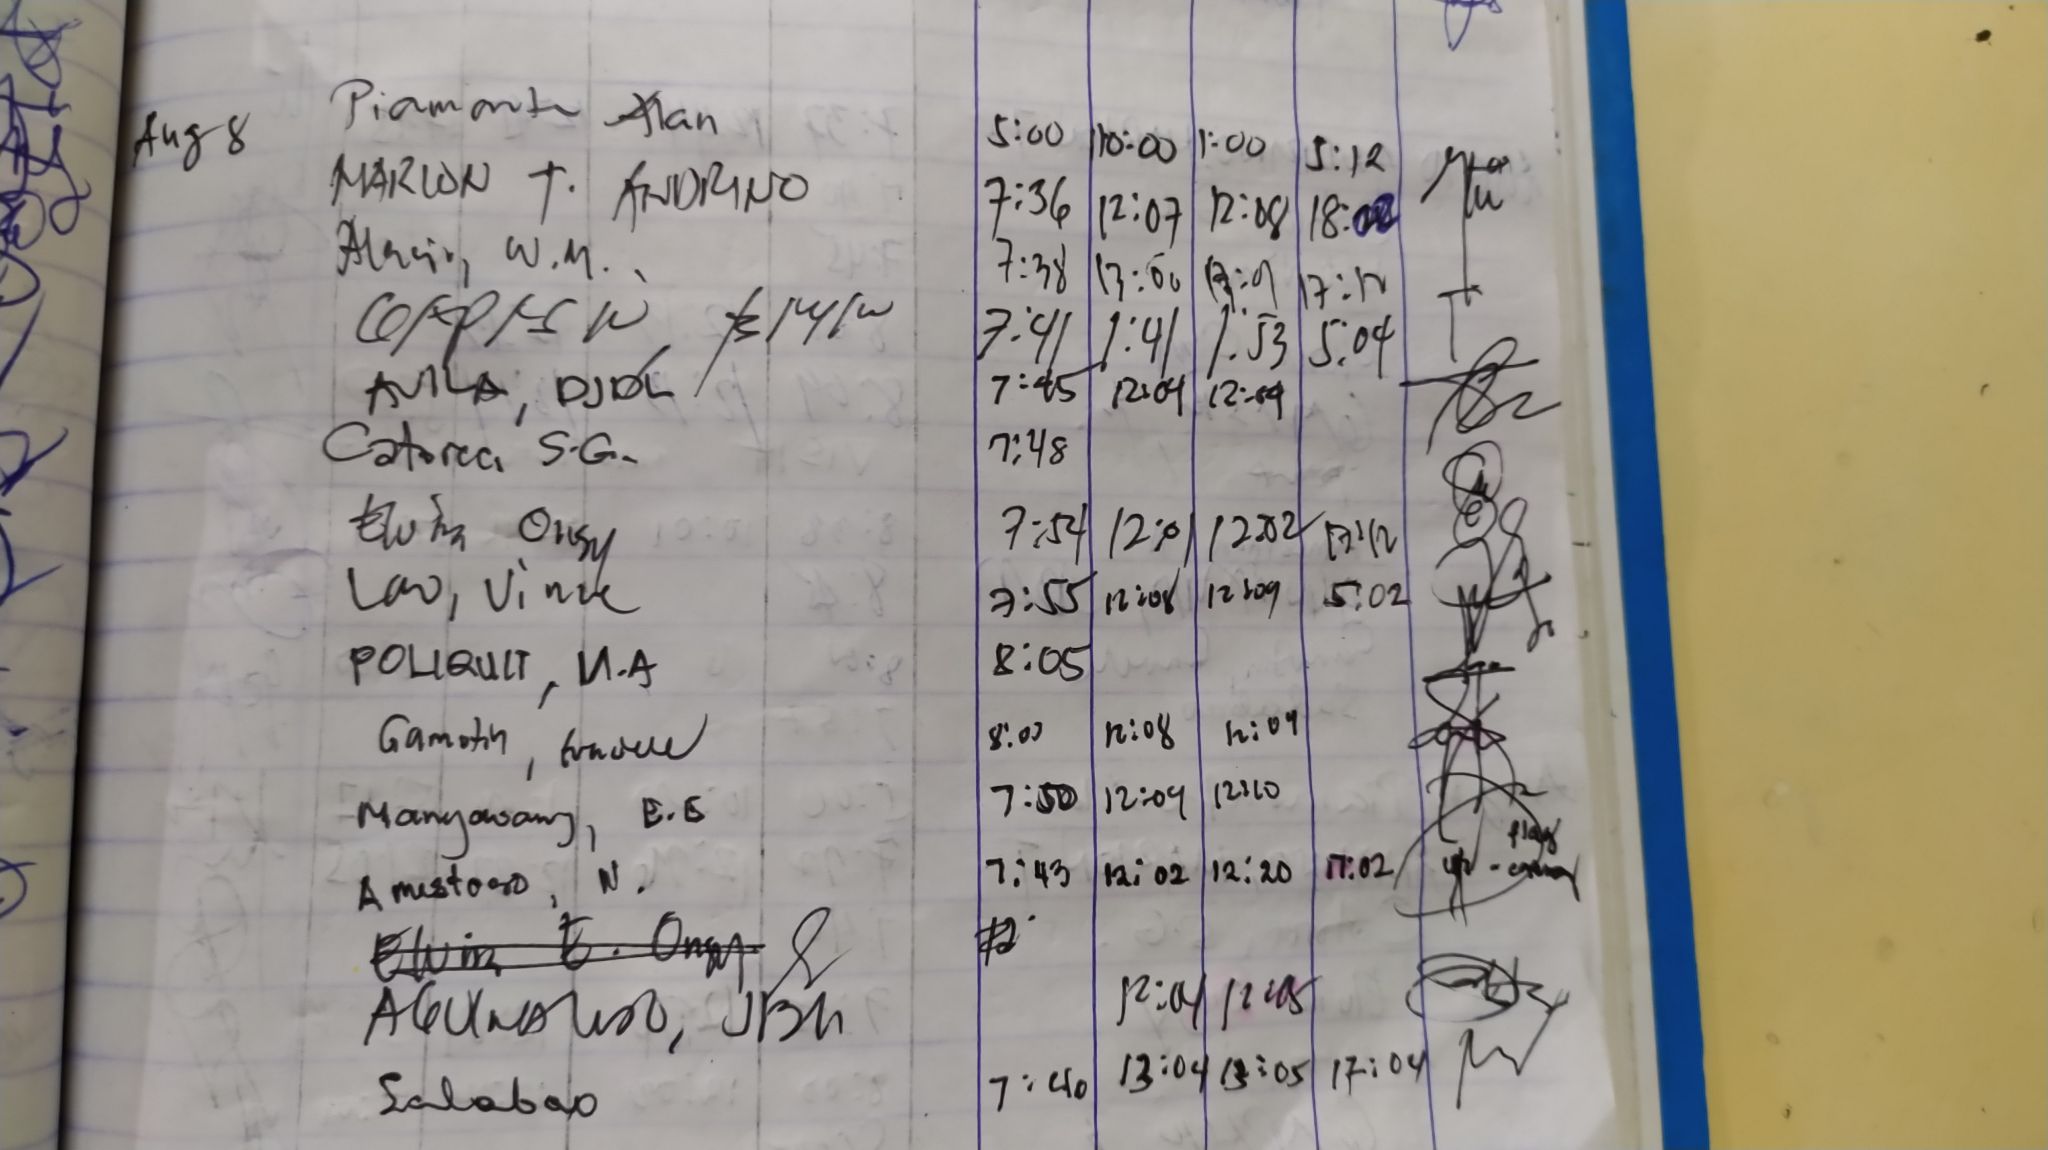 Aug 8 Piamonte Alan 5:00 10:00 1:00 5:12
MARLON T. ANDRINO 7:36 12:07 12:08 18:02
W.M. 7:38 13:00 13:01 17:12
7:41 1:41 1:53 5:04
AVILA, DJDL 7:45 12:04 12:09
Catorce, S.G. 7:48
Elvira Ongy 7:54 12:01 12:02 17:12
Lao, Vince 7:55 12:08 12:09 5:02
POLIQUIT, M.A 8:05
Gamotin, 8:00 12:08 12:09
Manyawang, E.E 7:50 12:09 12:10
Amestoso, N. 7:43 12:02 12:20 17:02 flag
Elvira E. Ongy
12:04 12:05
Salabao 7:40 13:04 13:05 17:04